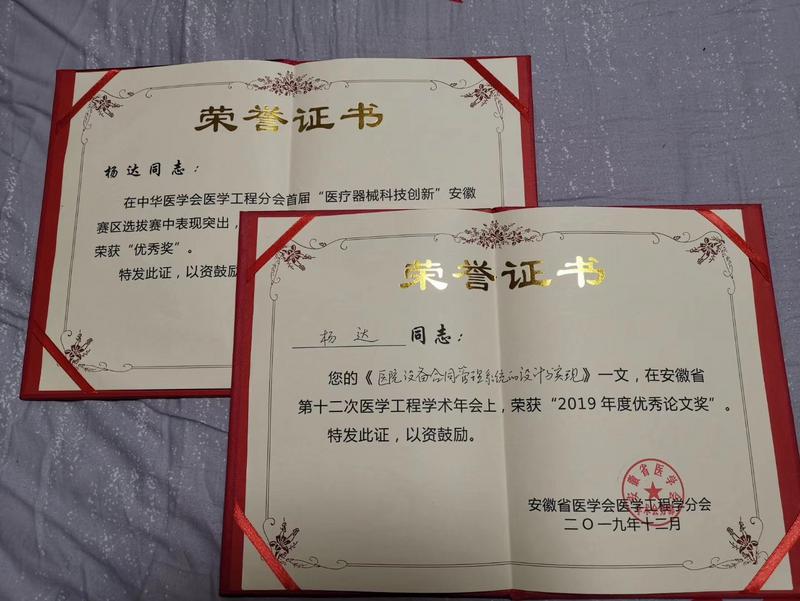 荣誉证书
杨达同志：
在中华医学会医学工程分会首届“医疗器械科技创新”安徽
赛区选拔赛中表现突出，
荣获“优秀奖”。
特发此证，以资鼓励
荣誉证书
杨达 同志：
您的《医院设备合同管理系统的设计与实现》一文，在安徽省
第十二次医学工程学术年会上，荣获“2019年度优秀论文奖”。
特发此证，以资鼓励。
安徽省医学会医学工程学分会
二〇一九年十二月
安徽省医学会